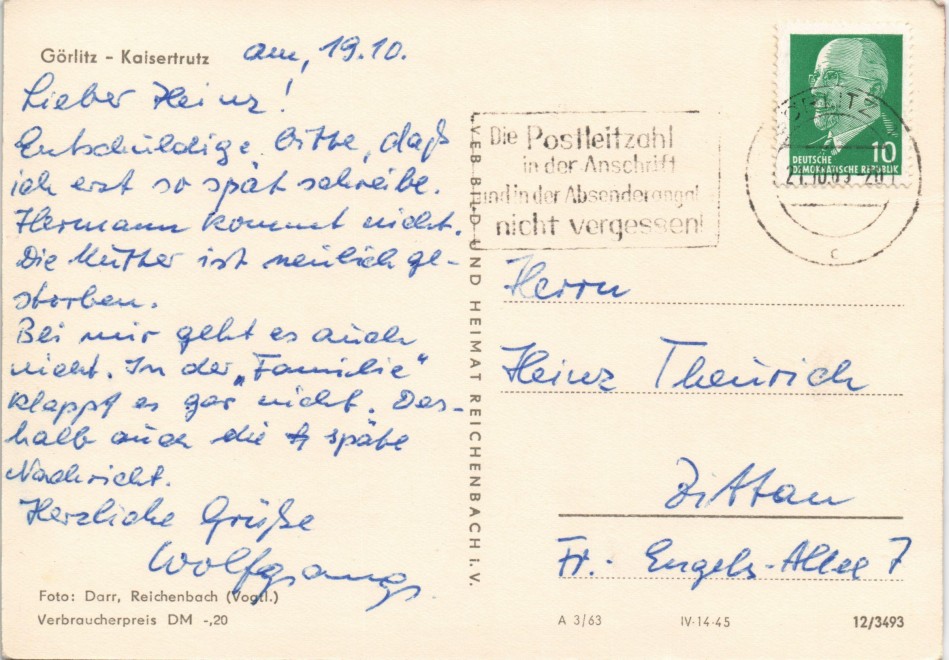 Görlitz - Kaisertrutz
am, 19.10.
Lieber Heinz!
Entschuldige bitte, daß
ich erst so spät schreibe.
Hermann kommt nicht.
Die Mutter ist neulich ge-
storben.
Bei mir geht es auch
nicht. In der „Familie"
klappt es gar nicht. Des-
halb auch die späte
Nachricht.
Herzliche Grüße
Wolfgang
Foto: Darr, Reichenbach (Vogtl.)
Verbraucherpreis DM -,20
VEB BILD UND HEIMAT REICHENBACH i. V.
Die Postleitzahl
in der Anschrift
und in der Absenderangabe
nicht vergessen!
GÖRLITZ
c
10
DEUTSCHE
DEMOKRATISCHE REPUBLIK
Herrn
Heinz Theurich
Zittau
Fr.- Engels-Allee 7
A 3/63
IV-14-45
12/3493